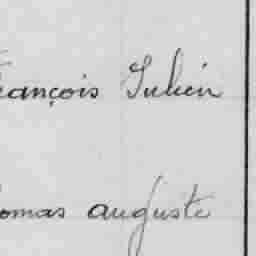 rançois Julien
omas auguste